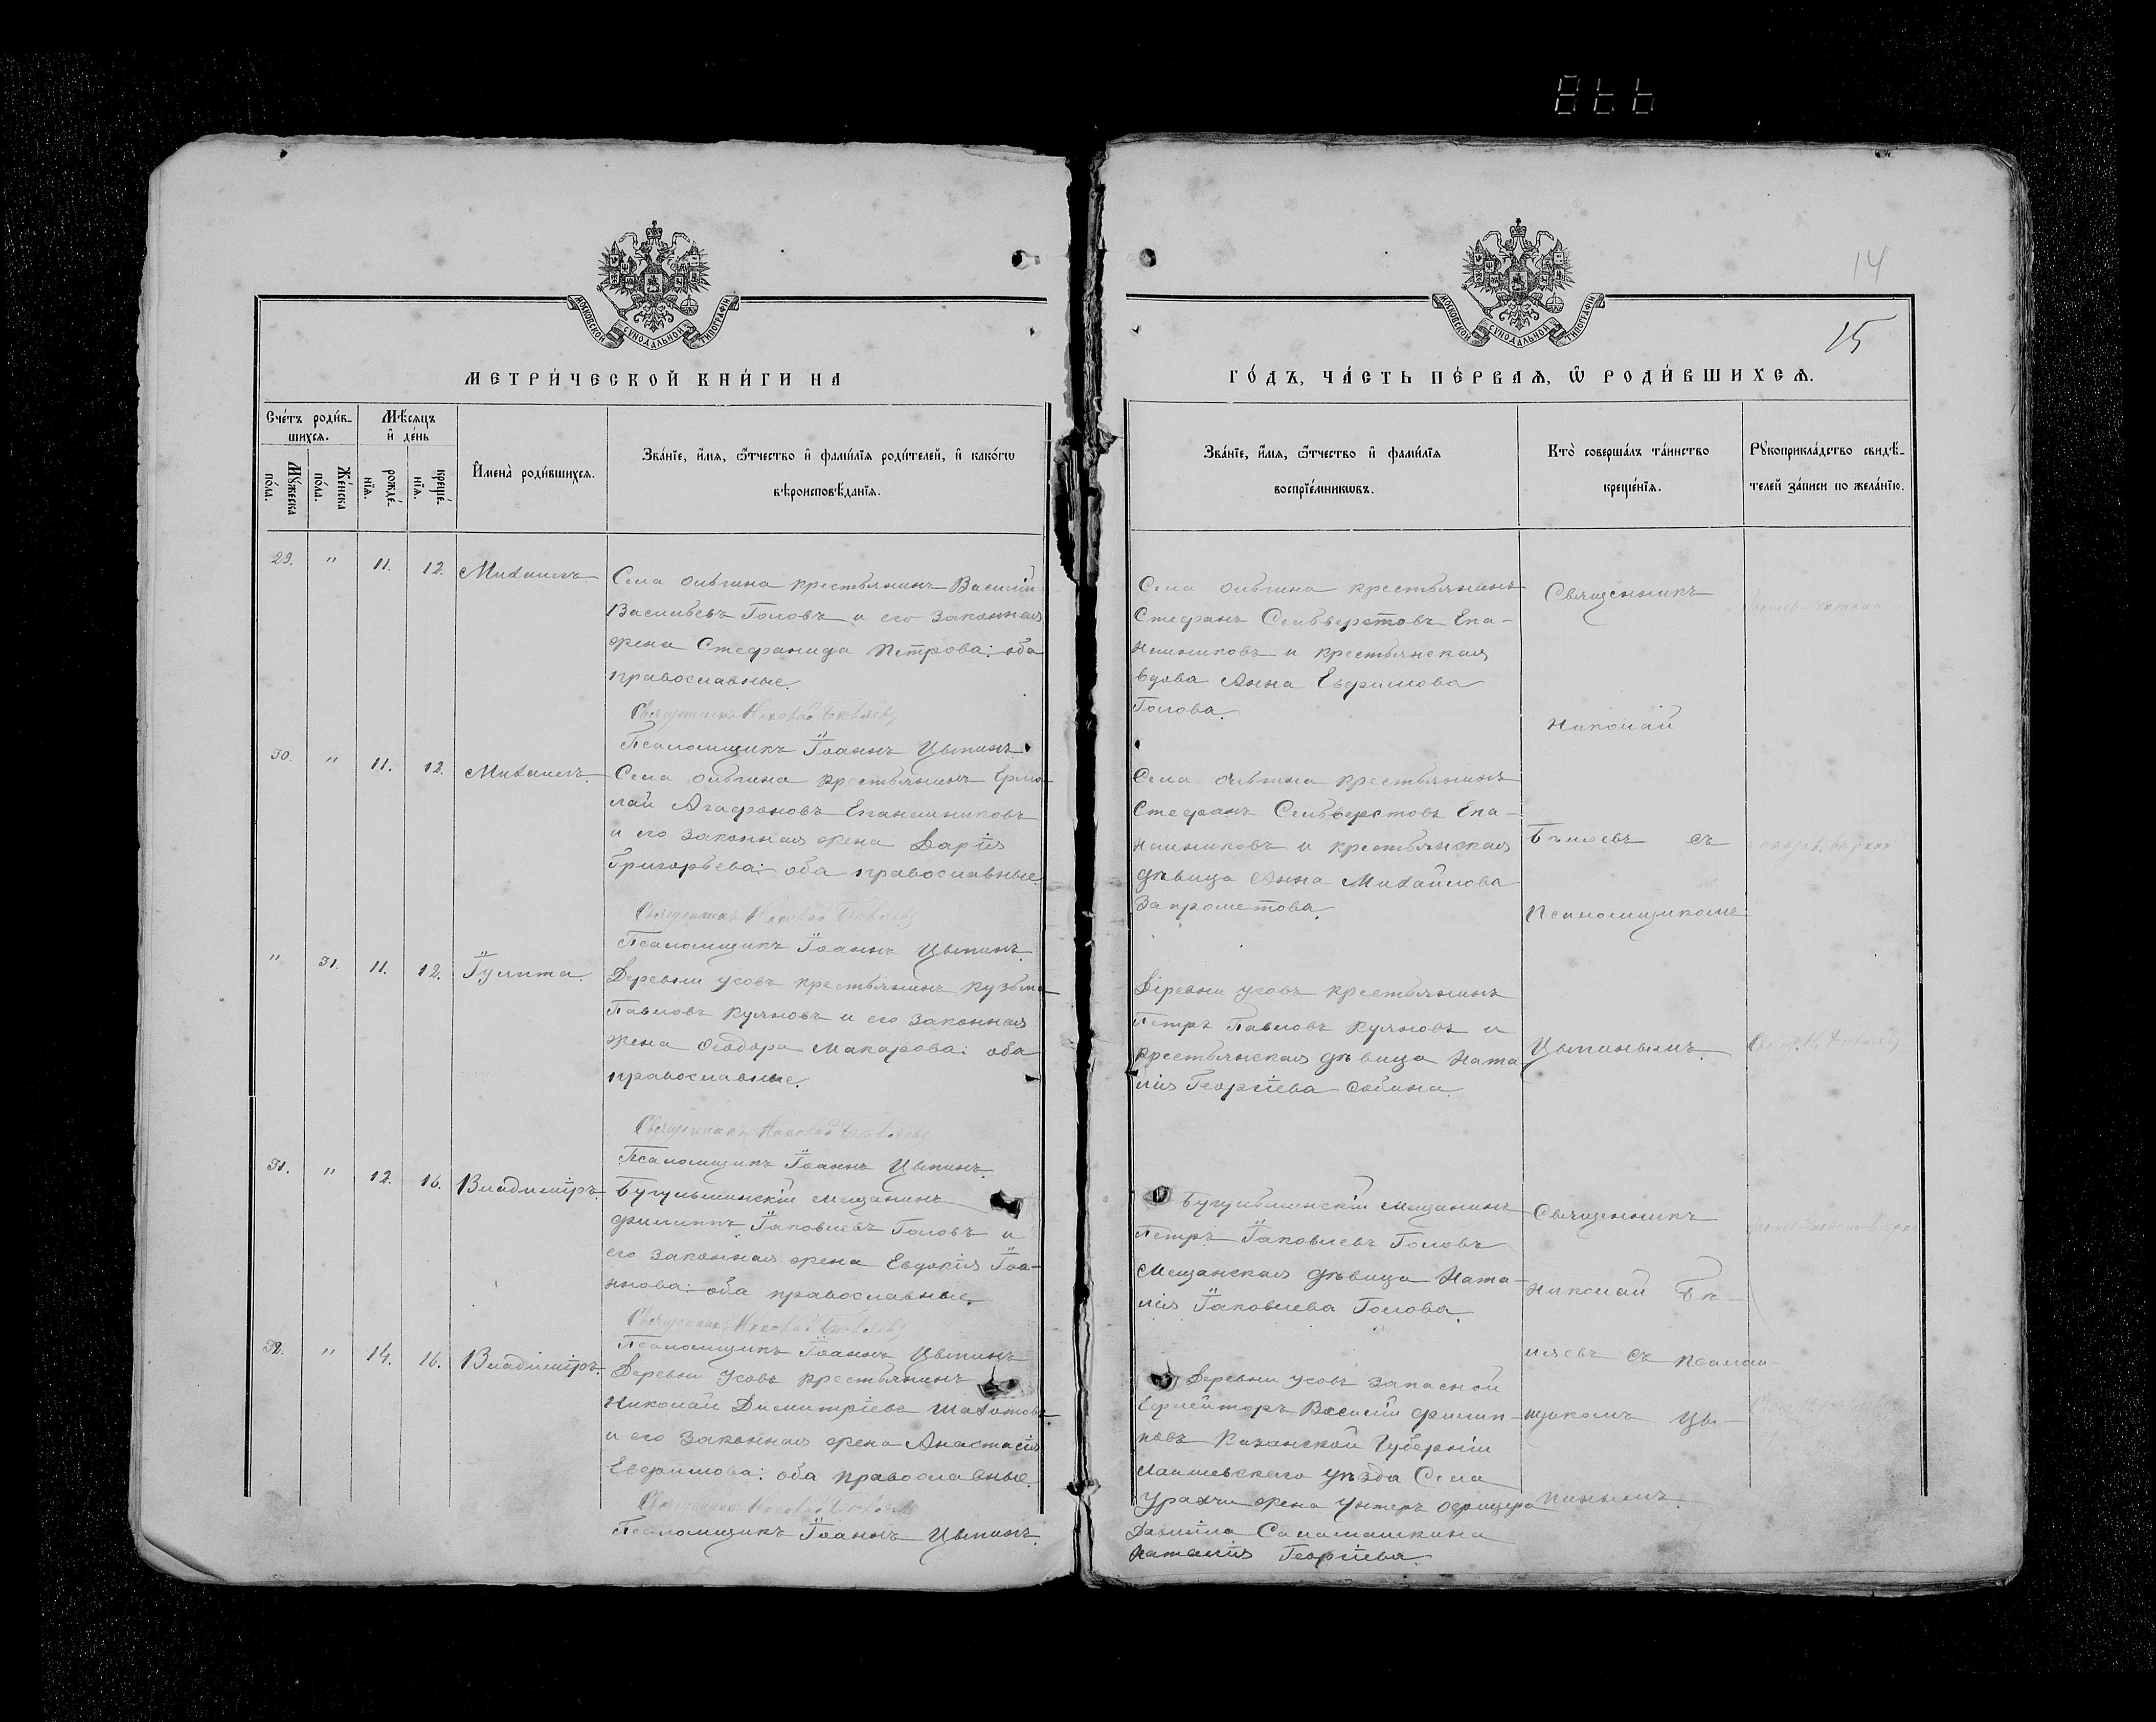 14
15
МОСКОВСКОЙ СѴНОДАЛЬНОЙ ТИПОГРАФІИ
МОСКОВСКОЙ СѴНОДАЛЬНОЙ ТИПОГРАФІИ
МЕТРИ́ЧЕСКОЙ КНИ́ГИ НА
Сче́тъ роди́в-
шихсѧ.
Мѣ́сѧцъ
и҆ де́нь
Мꙋ́жеска
по́ла.
Же́нска
по́ла.
рожде́-
нїѧ.
креще́-
нїѧ.
И҆мена̀ роди́вшихсѧ.
Зва́нїе, и҆́мѧ, ѻ҆́тчество и҆ фами́лїѧ роди́телей, и҆ како́гѡ
вѣроисповѣ́данїѧ.
29. " 11. 12. Михаилъ
Села Ольгина крестьянинъ Василій
Васильевъ Головъ и его законная
жена Стефанида Петрова: оба
православные.
Священникъ Николай Бѣляевъ
Псаломщикъ Іоаннъ Цыпинъ.
30. " 11. 12. Михаилъ
Села Ольгина крестьянинъ Ермо-
лай Агафоновъ Епанешниковъ
и его законная жена Дарія
Григорьева: оба православные.
Священникъ Николай Бѣляевъ
Псаломщикъ Іоаннъ Цыпинъ.
" 31. 11. 12. Іулита.
Деревни Усовъ крестьянинъ Кузьма
Павловъ Куяновъ и его законная
жена Ѳеодора Макарова: оба
православные.
Священникъ Николай Бѣляевъ
Псаломщикъ Іоаннъ Цыпинъ.
31. " 12. 16. Владиміръ.
Бугульминскій мещанинъ
Филиппъ Іаковлевъ Головъ и
его законная жена Евдокія Іоа-
ннова: оба православные.
Священникъ Николай Бѣляевъ
Псаломщикъ Іоаннъ Цыпинъ
32. " 14. 16. Владиміръ.
Деревни Усовъ крестьянинъ
Николай Димитріевъ
и его законная жена Анастасія
Евфимова: оба православные.
Священникъ Николай Бѣляевъ
Псаломщикъ Іоаннъ Цыпинъ.
ГО́ДЪ, ЧА́СТЬ ПЕ́РВАѦ, Ѡ҆ РОДИ́ВШИХСѦ.
Зва́нїе, и҆́мѧ, ѻ҆́тчество и҆ фами́лїѧ
воспрїе́мникѡвъ.
Кто̀ соверша́лъ та́инство
креще́нїѧ.
Рꙋкоприкла́дство свидѣ́-
телей за́писи по жела́нїю.
Села Ольгина крестьянинъ
Стефанъ Сельверстовъ Епа-
нешниковъ и крестьянская
вдова Анна Евфимова
Голова.
Села Ольгина крестьянинъ
Стефанъ Сельверстовъ Епа-
нешниковъ и крестьянская
дѣвица Анна Михайлова
Запрометова.
Деревни Усовъ крестьянинъ
Петръ Павловъ Куяновъ и
крестьянская дѣвица Ната-
лія Георгіева Собина.
Бугульминскій мещанинъ
Петръ Іаковлевъ Головъ
мещанская дѣвица Ната-
лія Іаковлева Голова.
Деревни Усовъ запасной
Ефрейторъ Василій Филип-
повъ Казанской Губерніи
Лаишевскаго уѣзда Села
Урахчи жена унтеръ офицера
Даніила Саламашкина
Наталія Георгіева.
Священникъ
Николай
Бѣляевъ съ
Псаломщикомъ
Цыпинымъ.
Священникъ
Николай Бѣ-
ляевъ съ псалом-
щикомъ Цы-
пинымъ.